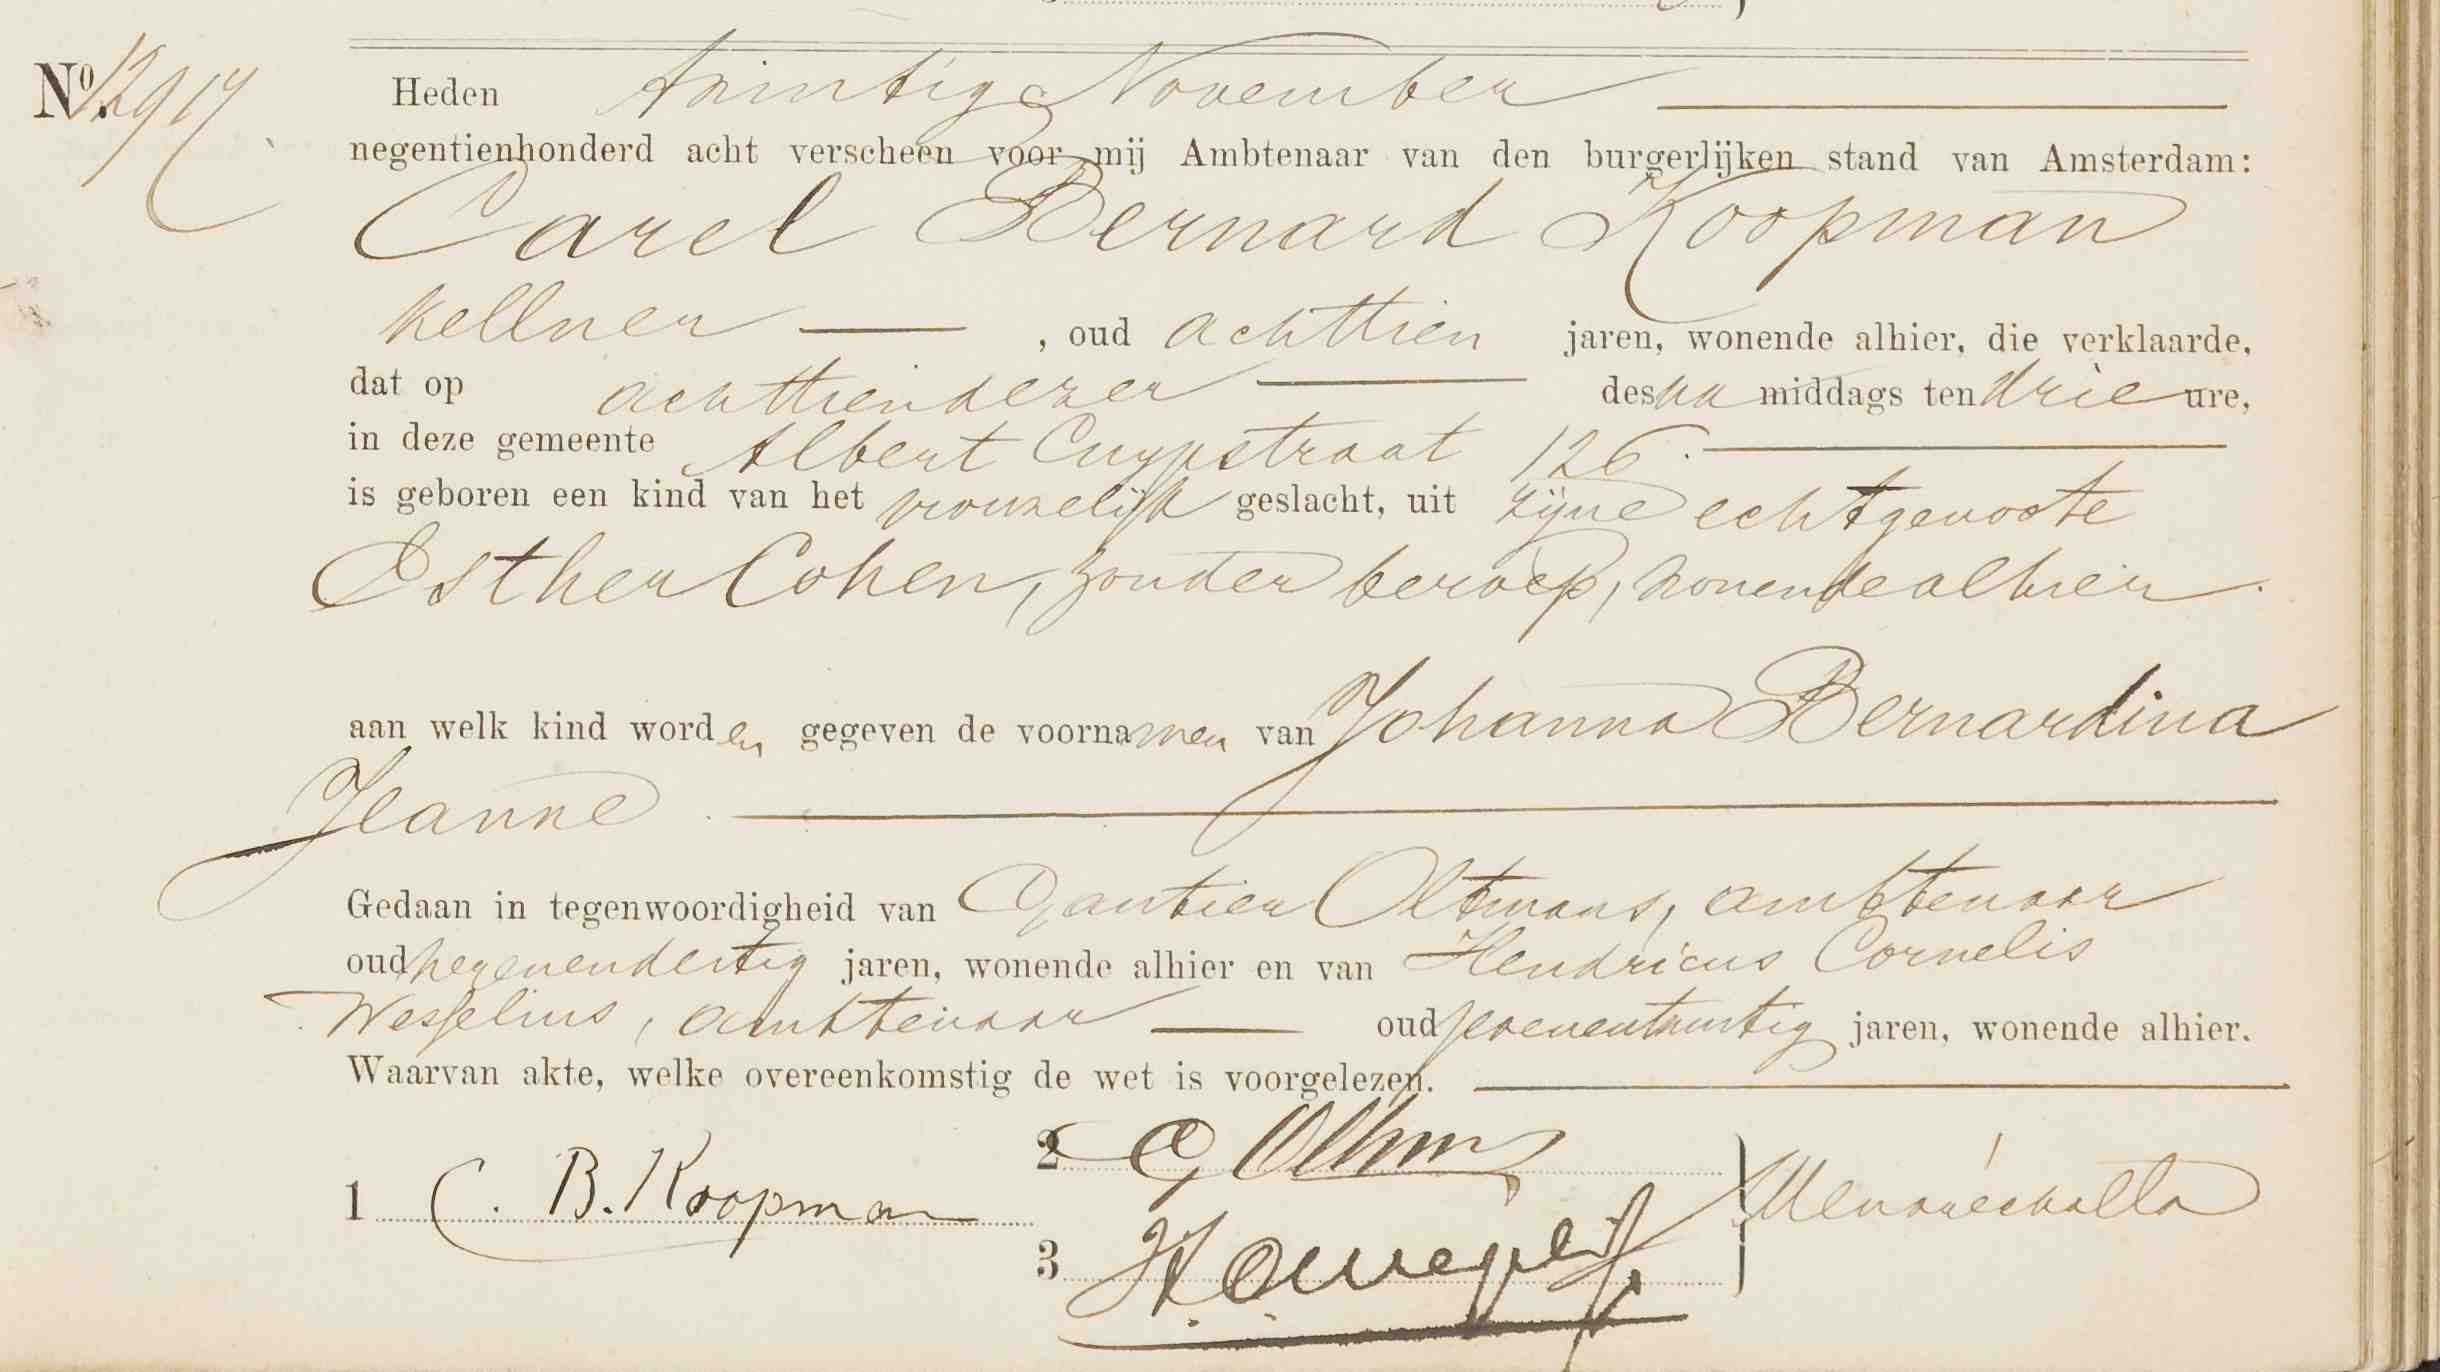 No. 12917
Heden twintig November
negentienhonderd acht verscheen voor mij Ambtenaar van den burgerlijken stand van Amsterdam:
Carel Bernard Koopman
kellner , oud achttien jaren, wonende alhier, die verklaarde,
dat op achttiendezer des na middags ten drie ure,
in deze gemeente Albert Cuypstraat 126.
is geboren een kind van het vrouwelijk geslacht, uit zijne echtgenoote
Esther Cohen, zonder beroep, wonende alhier.
aan welk kind worden gegeven de voornamen van Johanna Bernardina
Jeanne
Gedaan in tegenwoordigheid van Oltmans, ambtenaar
oud negenendertig jaren, wonende alhier en van Hendricus Cornelis
Wesselius, ambtenaar oud zevenentwintig jaren, wonende alhier.
Waarvan akte, welke overeenkomstig de wet is voorgelezen.
2
1 C. B. Koopman
3